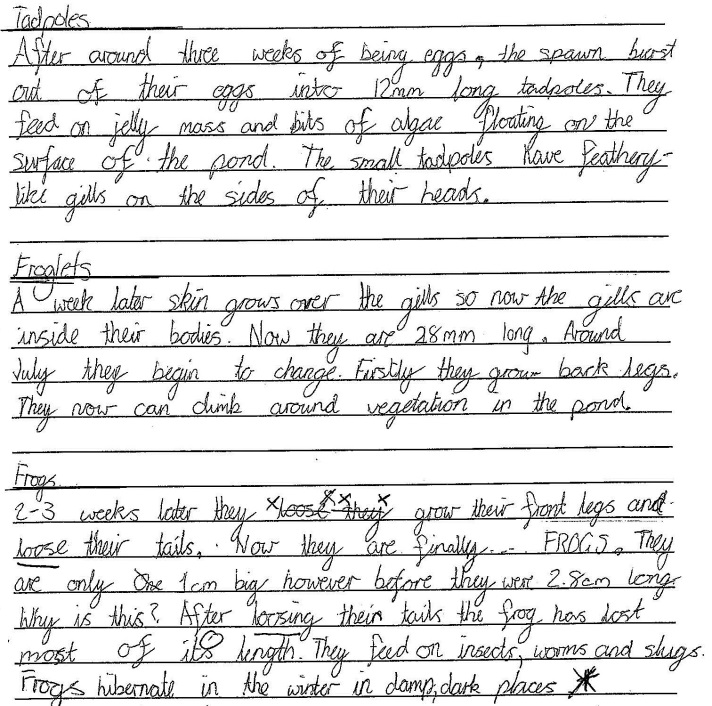 Tadpoles
After around three weeks of being eggs, the spawn burst
out of their eggs into 12mm long tadpoles. They
feed on jelly mass and bits of algae floating on the
surface of the pond. The small tadpoles have feathery-
like gills on the sides of their heads.
Froglets
A week later skin grows over the gills so now the gills are
inside their bodies. Now they are 28mm long. Around
July they begin to change. Firstly they grow back legs.
They now can climb around vegetation in the pond.
Frogs
2-3 weeks later they loose they grow their front legs and
loose their tails. Now they are finally... FROGS. They
are only One 1cm big however before they were 2.8cm long.
Why is this? After loosing their tails the frog has lost
most of its length. They feed on insects, worms and slugs.
Frogs hibernate in the winter in damp, dark places